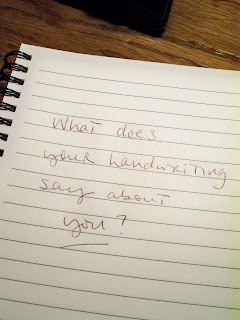 What does
your handwriting
say about
you?